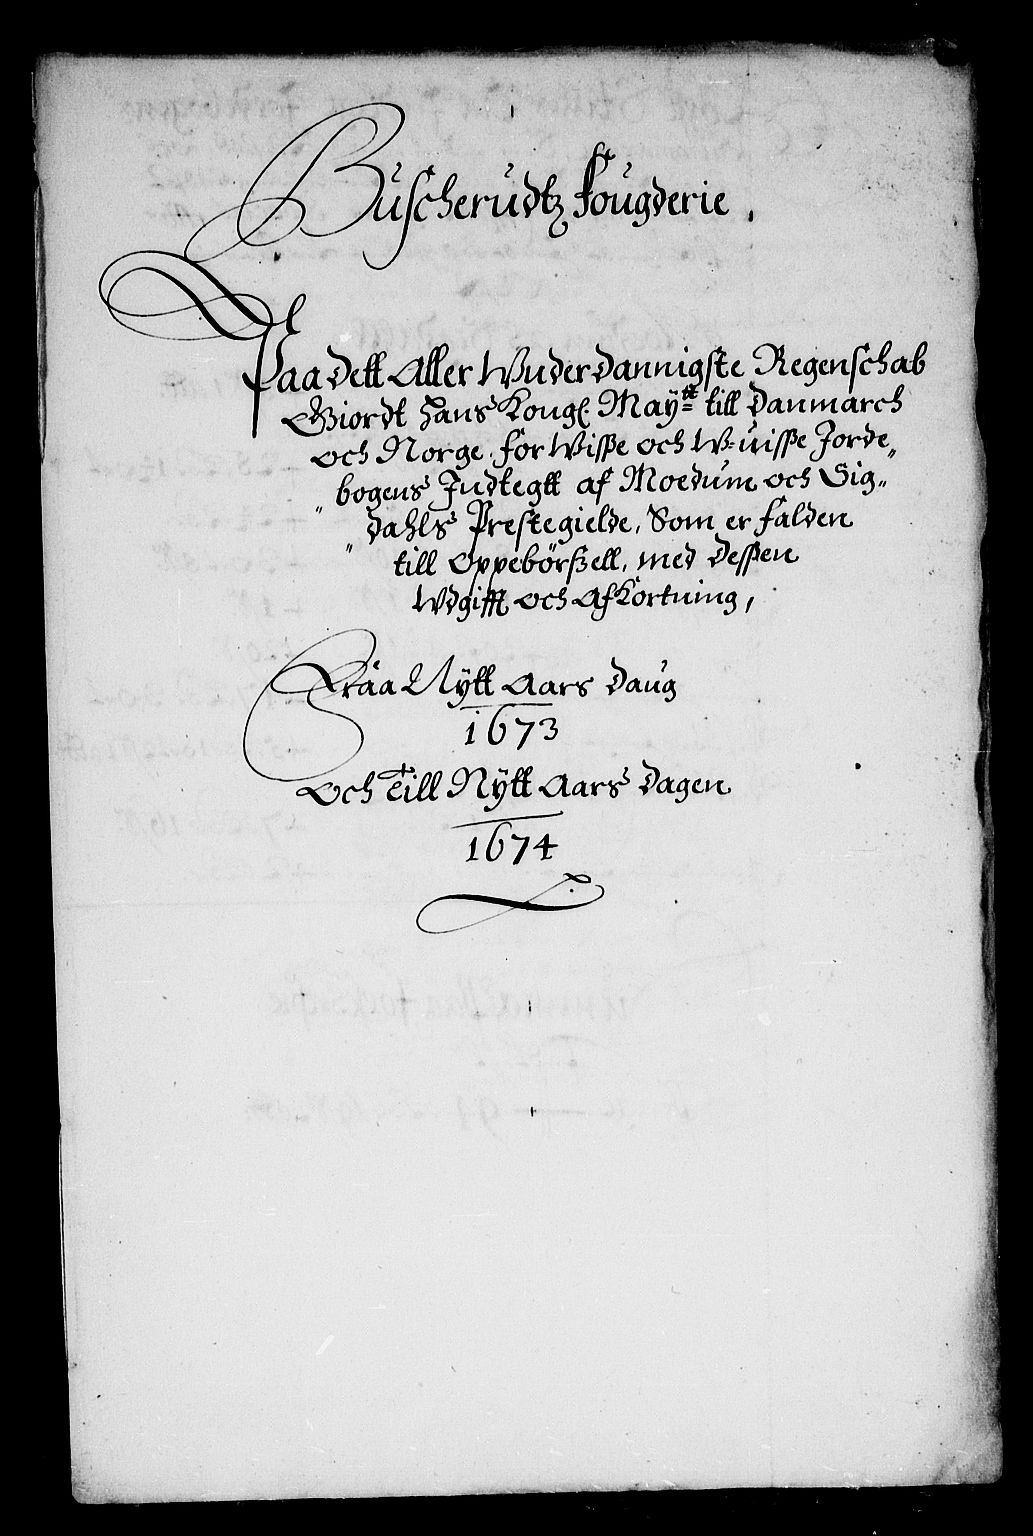 Buscherudtz fougderie,
Paa Dett Aller Wnderdannigste Regenschab
Giordt Hans Kongl. Mayᵗᵗ: till Danmarch
och Norge, for Wisse och W-uisse Jorde„
„ bogens Jndtegtt af Moedum och Sig„
„ dahls Prestegielde, Som er falden
till Oppebörßell, med Dessen
Wdgifft och AfKortning,
Fraa Nÿtt Aars Daug
1673
och Till Nÿtt Aars Dagen
1674